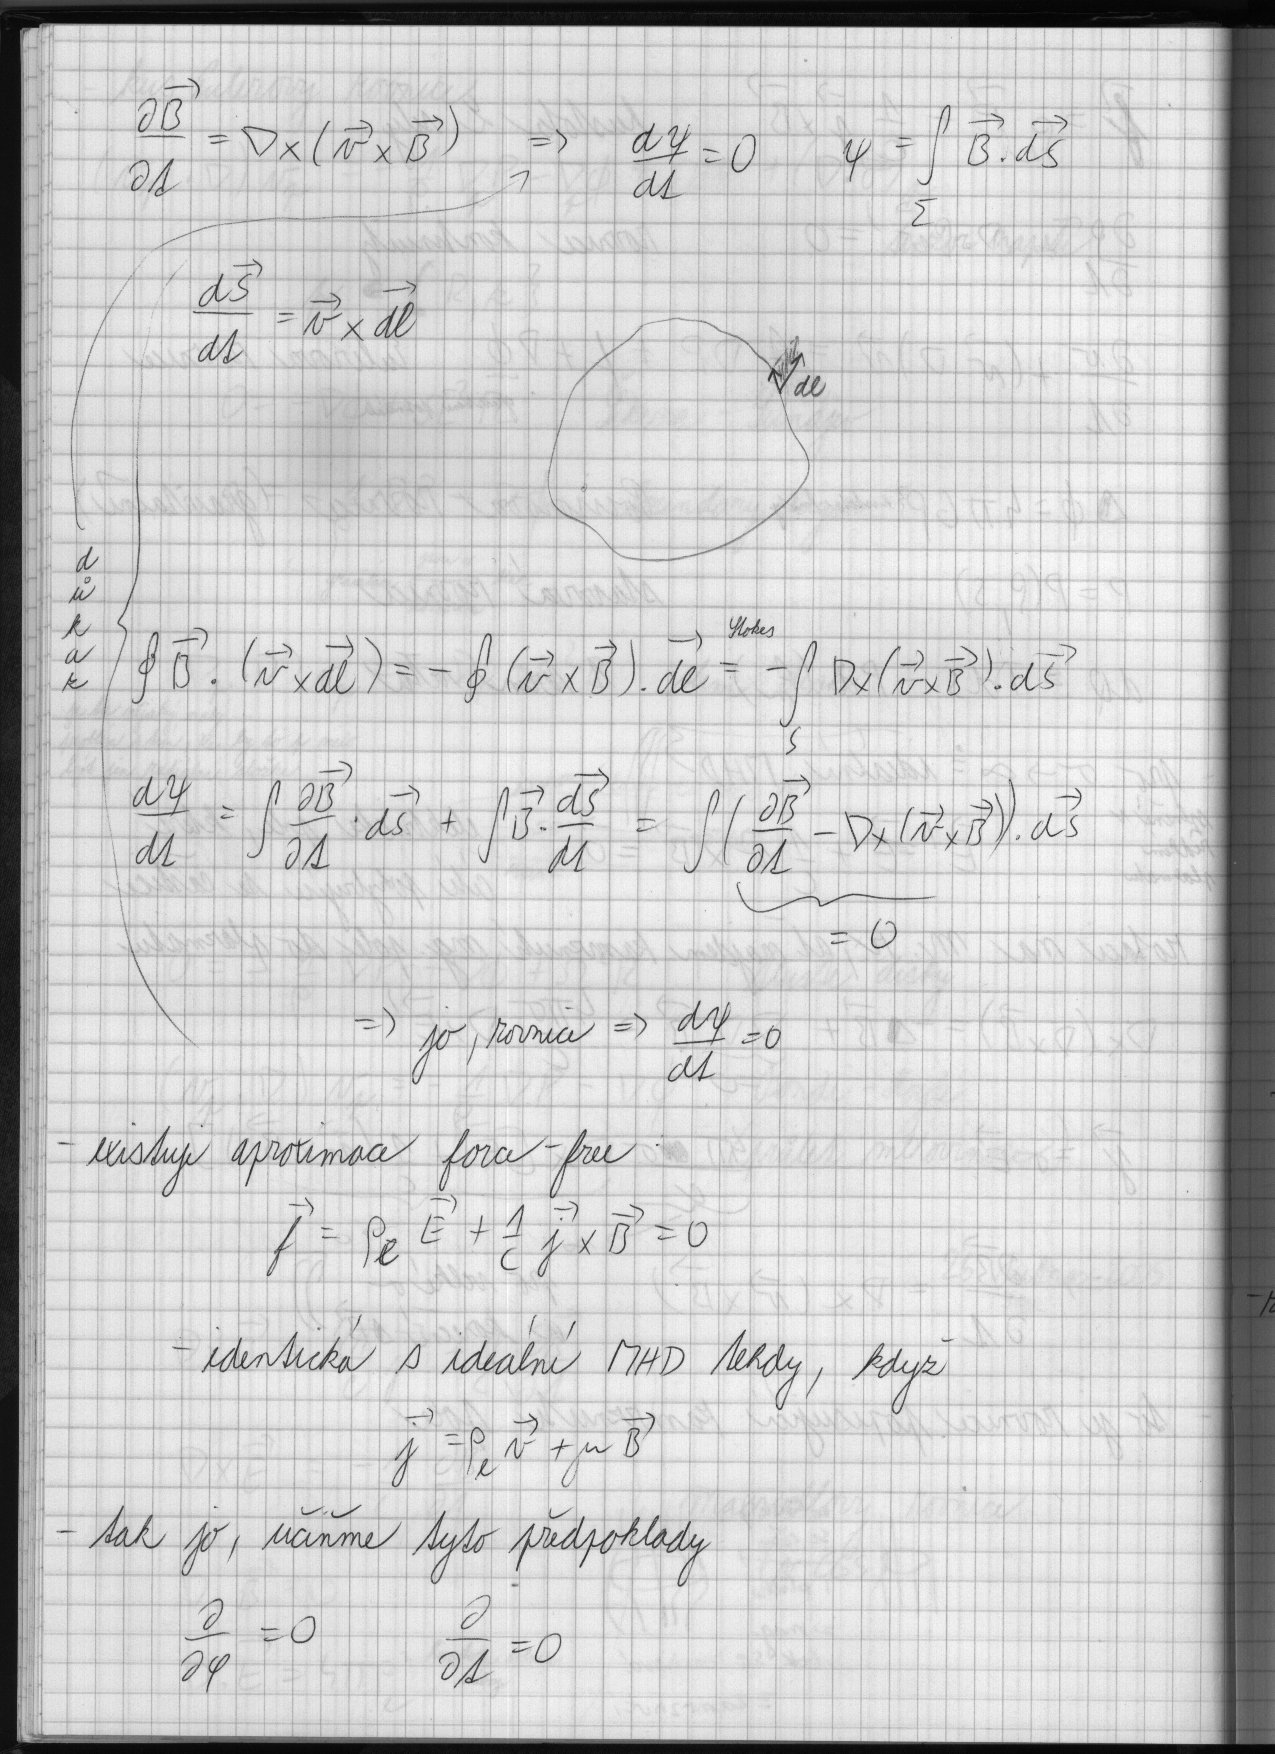 ∂B⃗/∂t = ∇×(v⃗×B⃗) ⇒ dψ/dt = 0 ψ = ∫_Σ B⃗·dS⃗
dS⃗/dt = v⃗×dl⃗
dl
důkaz
∮B⃗·(v⃗×dl⃗) = -∮(v⃗×B⃗)·dl⃗ =^{Stokes} -∫_S ∇×(v⃗×B⃗)·dS⃗
dψ/dt = ∫ ∂B⃗/∂t · dS⃗ + ∫B⃗·dS⃗/dt = ∫(∂B⃗/∂t - ∇×(v⃗×B⃗))·dS⃗
= 0
=> jo, rovnice => dψ/dt = 0
- existuje aproximace force-free
f⃗ = ρ_e E⃗ + 1/c j⃗×B⃗ = 0
- identická s ideální MHD tehdy, když
j⃗ = ρ_e v⃗ + μ B⃗
- tak jo, učiňme tyto předpoklady
∂/∂φ = 0 ∂/∂t = 0